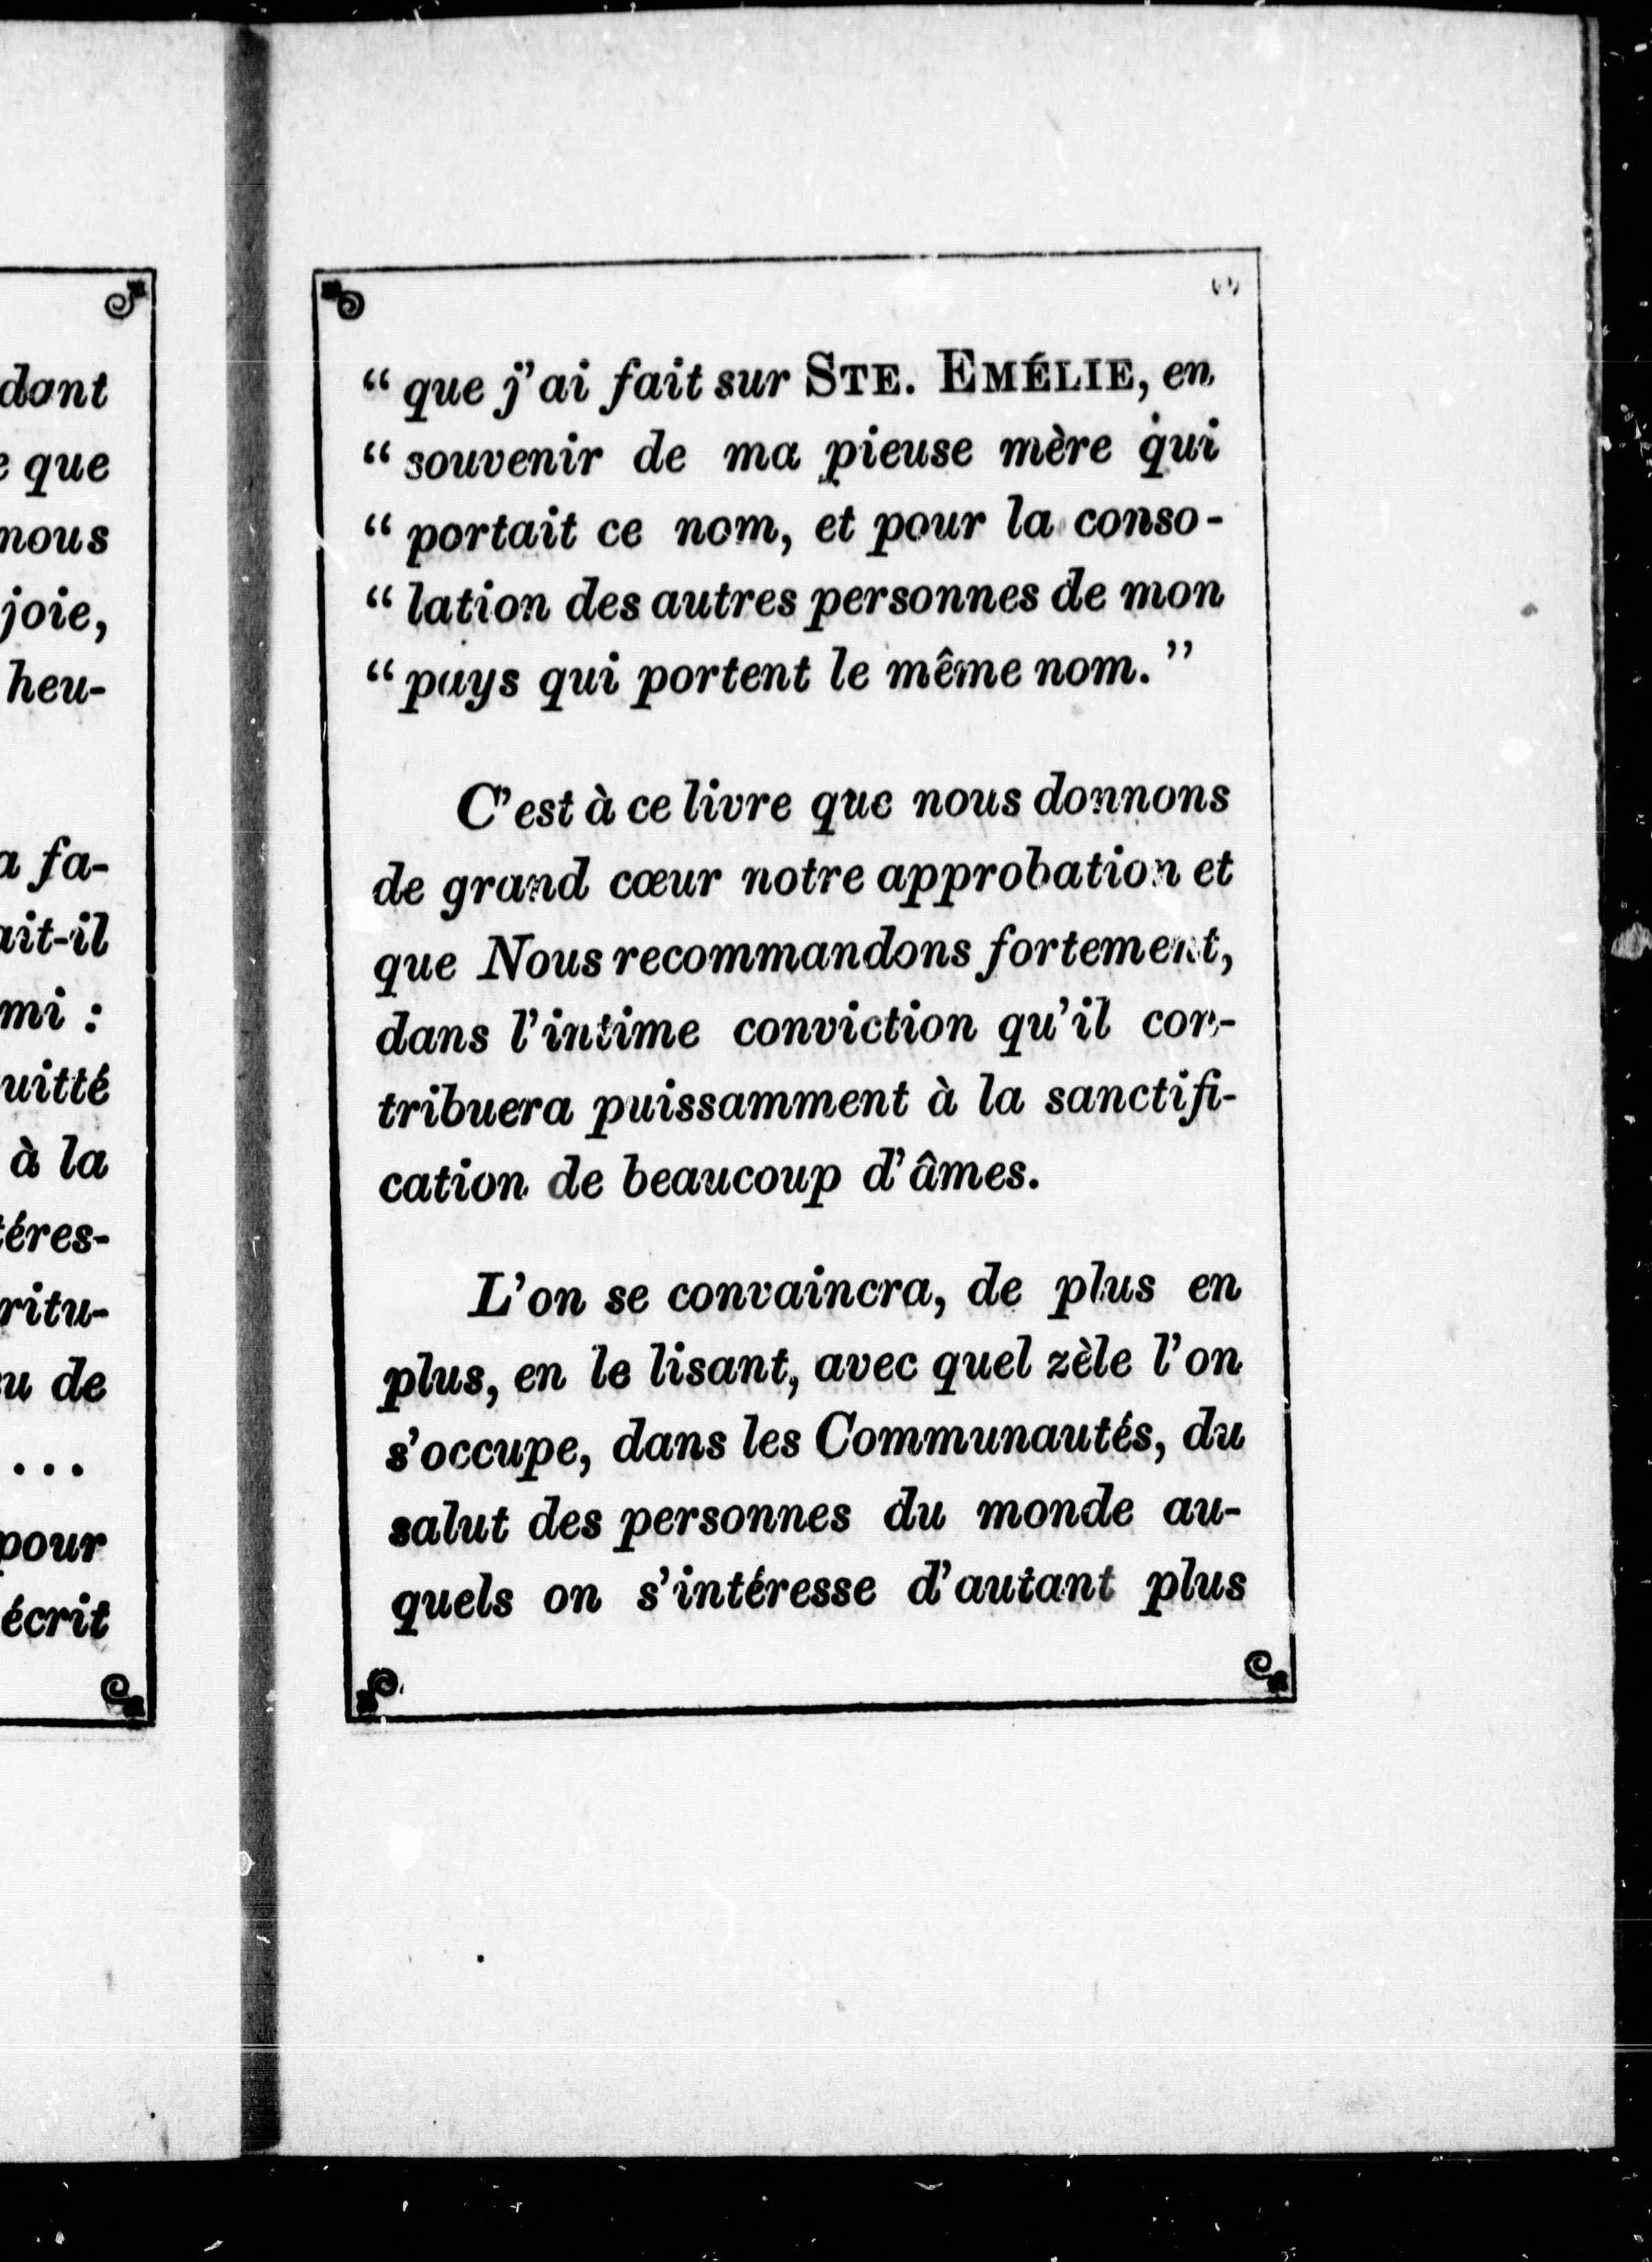 dant
que
nous
joie,
heu-
fa-
ait-il
mi :
uitté
à la
téres-
ritu-
u de
...
pour
écrit
“ que j’ai fait sur STE. EMÉLIE, en
“ souvenir de ma pieuse mère qui
“ portait ce nom, et pour la conso-
“ lation des autres personnes de mon
“ pays qui portent le même nom.”
C’est à ce livre que nous donnons
de grand cœur notre approbation et
que Nous recommandons fortement,
dans l’intime conviction qu’il con-
tribuera puissamment à la sanctifi-
cation de beaucoup d’âmes.
L’on se convaincra, de plus en
plus, en le lisant, avec quel zèle l’on
s’occupe, dans les Communautés, du
salut des personnes du monde au-
quels on s’intéresse d’autant plus